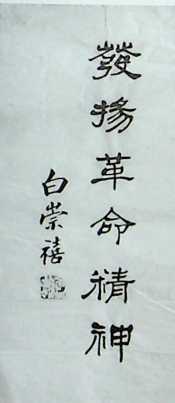 發揚革命精神
白崇禧